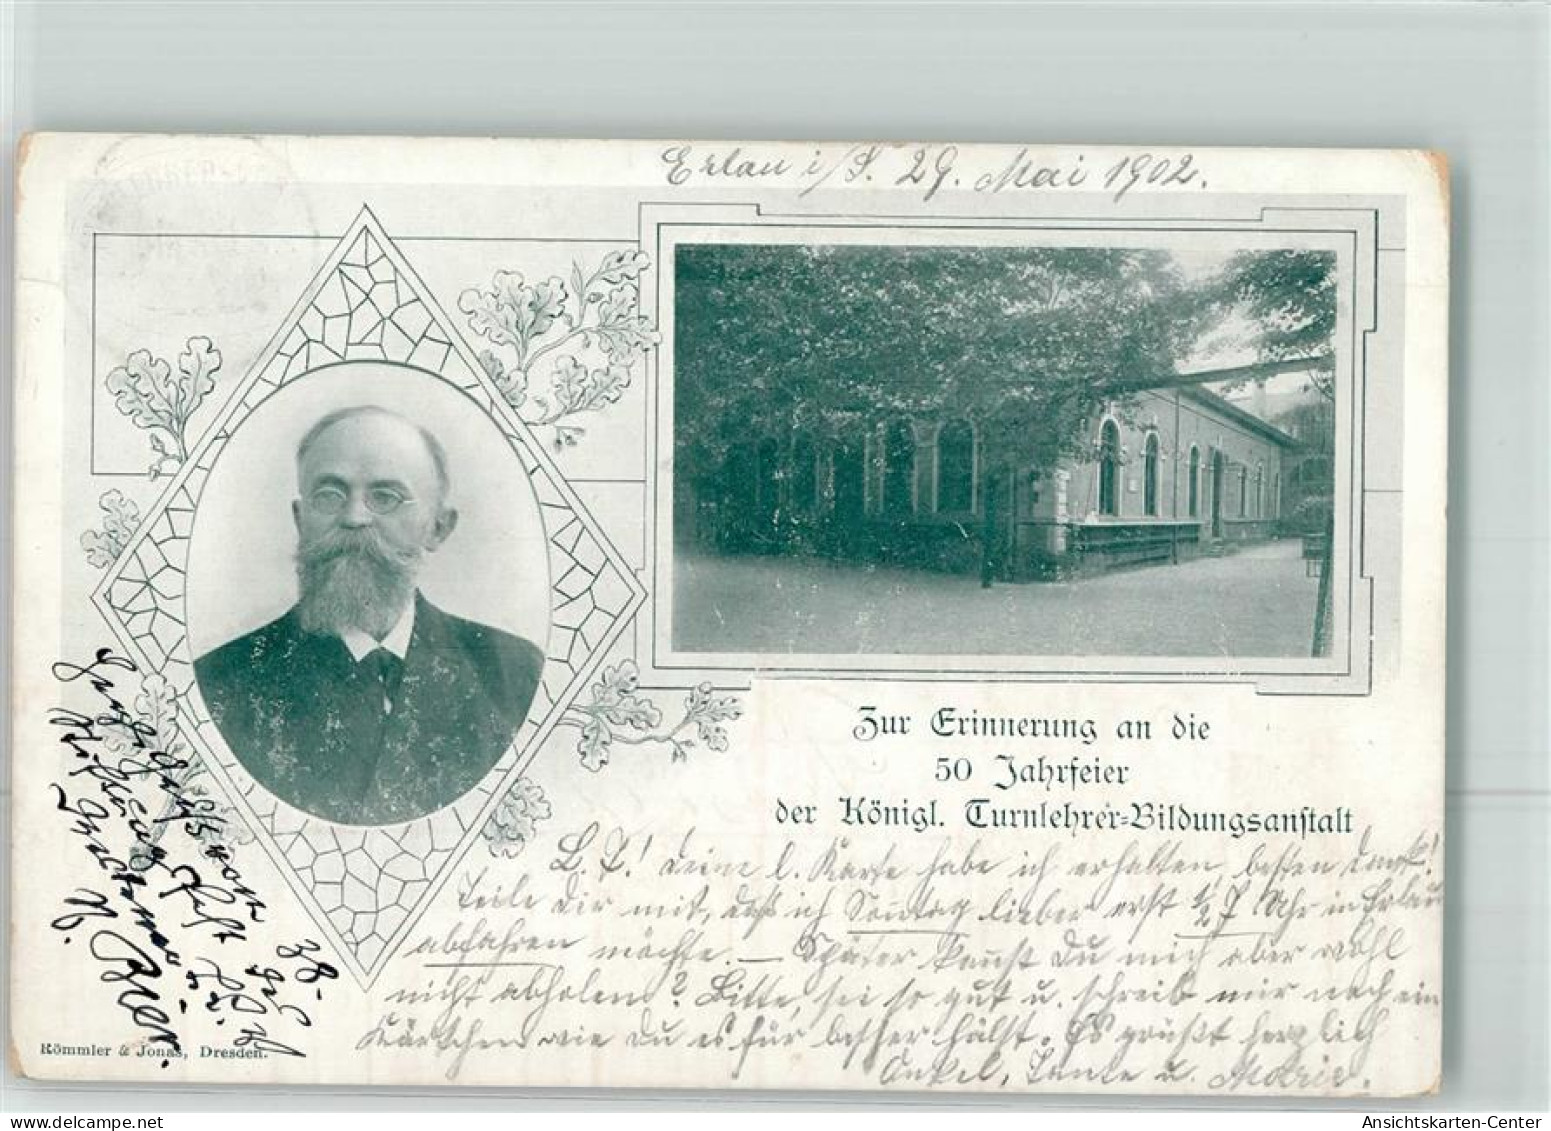 Erlau i/S. 29. Mai 1902.
Zur Erinnerung an die
50 Jahrfeier
der Königl. Turnlehrer-Bildungsanstalt
L. T.! Deine l. Karte habe ich erhalten, besten Dank!
Teile Dir mit, daß ich Sonntag lieber erst ½ 7 Uhr in Erlau
abfahren möchte. — Später kannst Du mich aber wohl
nicht abholen? Bitte, sei so gut u. schreib mir noch ein
Kärtchen wie Du es für besser hälst. Es grüßt herzlich
Onkel, Tante u. Marie.
Römmler & Jonas, Dresden.
Ansichtskarten-Center